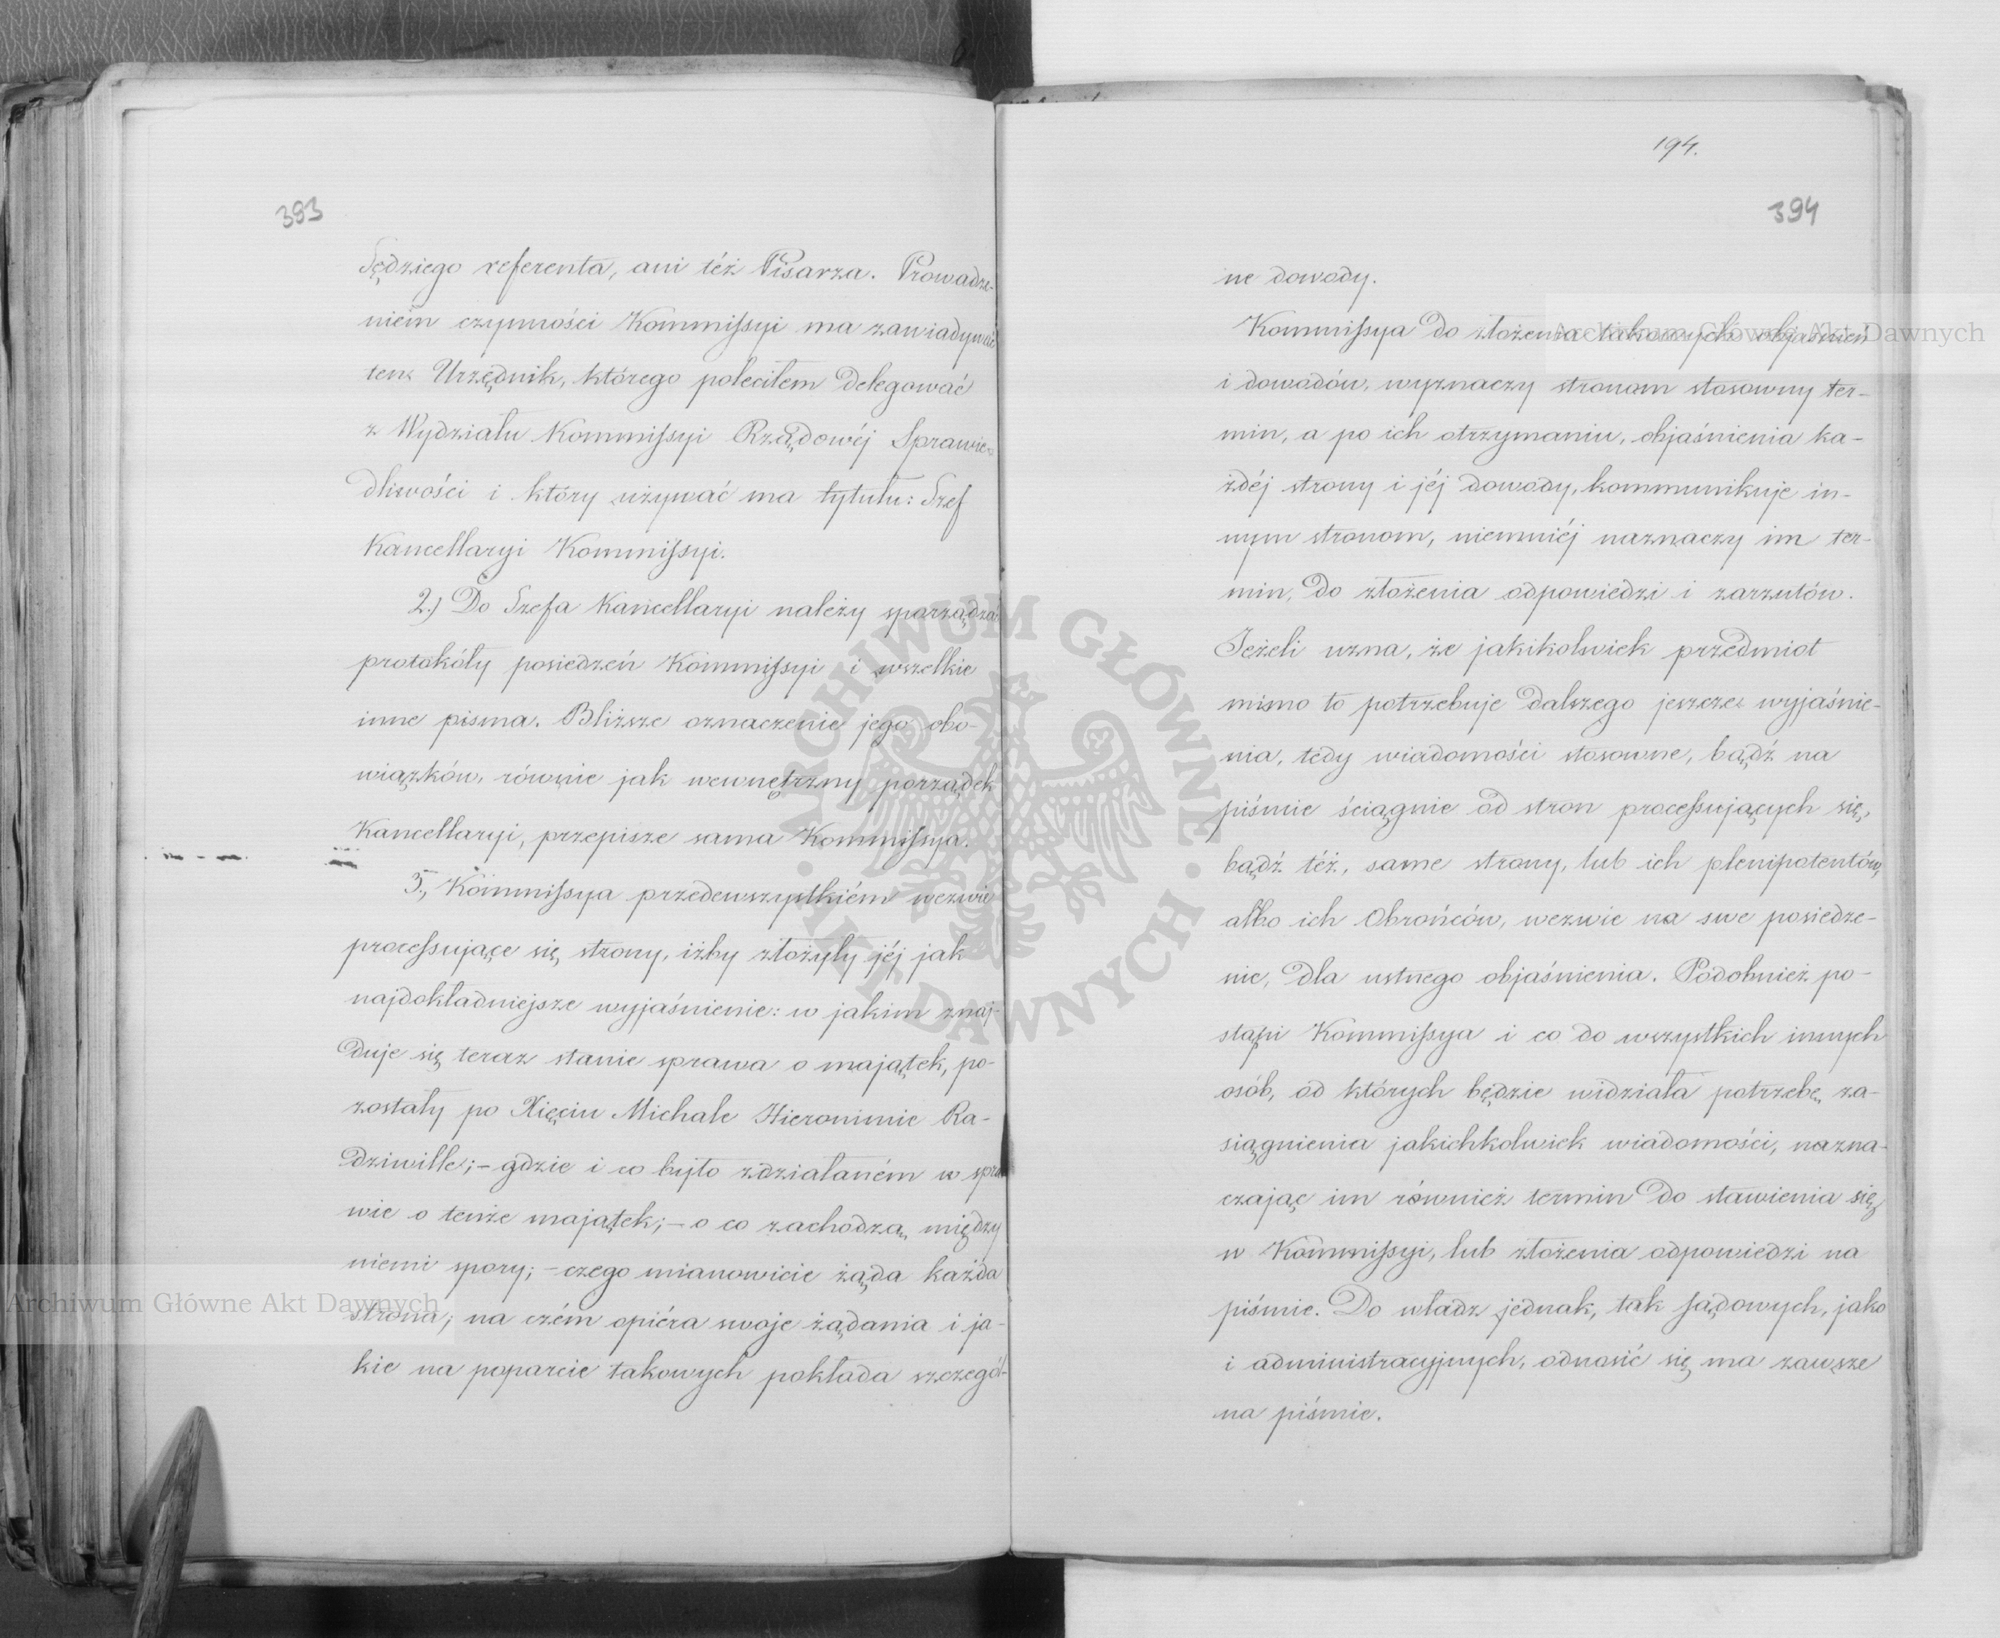 393
Sędziego referenta, ani téż Pisarza. Prowadze-
niem czynności Kommissyi ma zawiadywać
ten Urzędnik, którego poleciłem delegować
z Wydziału Kommissyi Rządowéj Sprawie-
dliwości i który używać ma tytułu: Szef
Kancellaryi Kommissyi.
2.) Do Szefa Kancellaryi należy sporządzać
protokóły posiedzeń Kommissyi i wszelkie
inne pisma. Bliższe oznaczenie jego obo-
wiązków, równie jak wewnętrzny porządek
Kancellaryi, przepisze sama Kommissya.
3., Kommissya przedewszystkiém wezwie
processujące się strony, iżby złożyły jéj jak
najdokładniejsze wyjaśnienie: w jakim znaj-
duje się teraz stanie sprawa o majątek, po-
zostały po Xięciu Michale Hieronimie Ra-
dziwille; – gdzie i co było zdziałaném w spra-
wie o tenże majątek; – o co zachodzą między
niemi spory; – czego mianowicie żąda każda
strona; na czém opiéra swoje żądania i ja-
kie na poparcie takowych pokłada szczegól-
194.
394
ne dowody.
Kommissya do złożenia takowych objaśnień
i dowodów, wyznaczy stronom stosowny ter-
min, a po ich otrzymaniu, objaśnienia ka-
żdéj strony i jéj dowody, kommunikuje in-
nym stronom, niemniéj naznaczy im ter-
min, do złożenia odpowiedzi i zarzutów.
Jeżeli uzna, że jakikolwiek przedmiot
mimo to potrzebuje dalszego jeszcze wyjaśnie-
nia, tedy wiadomości stosowne, bądź na
piśmie ściągnie od stron processujących się,
bądź téż, same strony, lub ich plenipotentów,
albo ich Obrońców, wezwie na swe posiedze-
nie, dla ustnego objaśnienia. Podobnież po-
stąpi Kommissya i co do wszystkich innych
osób, od których będzie widziała potrzebę za-
siągnienia jakichkolwiek wiadomości, nazna-
czając im również termin do stawienia się
w Kommissyi, lub złożenia odpowiedzi na
piśmie. Do władz jednak, tak sądowych, jako
i administracyjnych, odnosić się ma zawsze
na piśmie.
Archiwum Główne Akt Dawnych
Archiwum Główne Akt Dawnych
ARCHIWUM GŁÓWNE AKT DAWNYCH